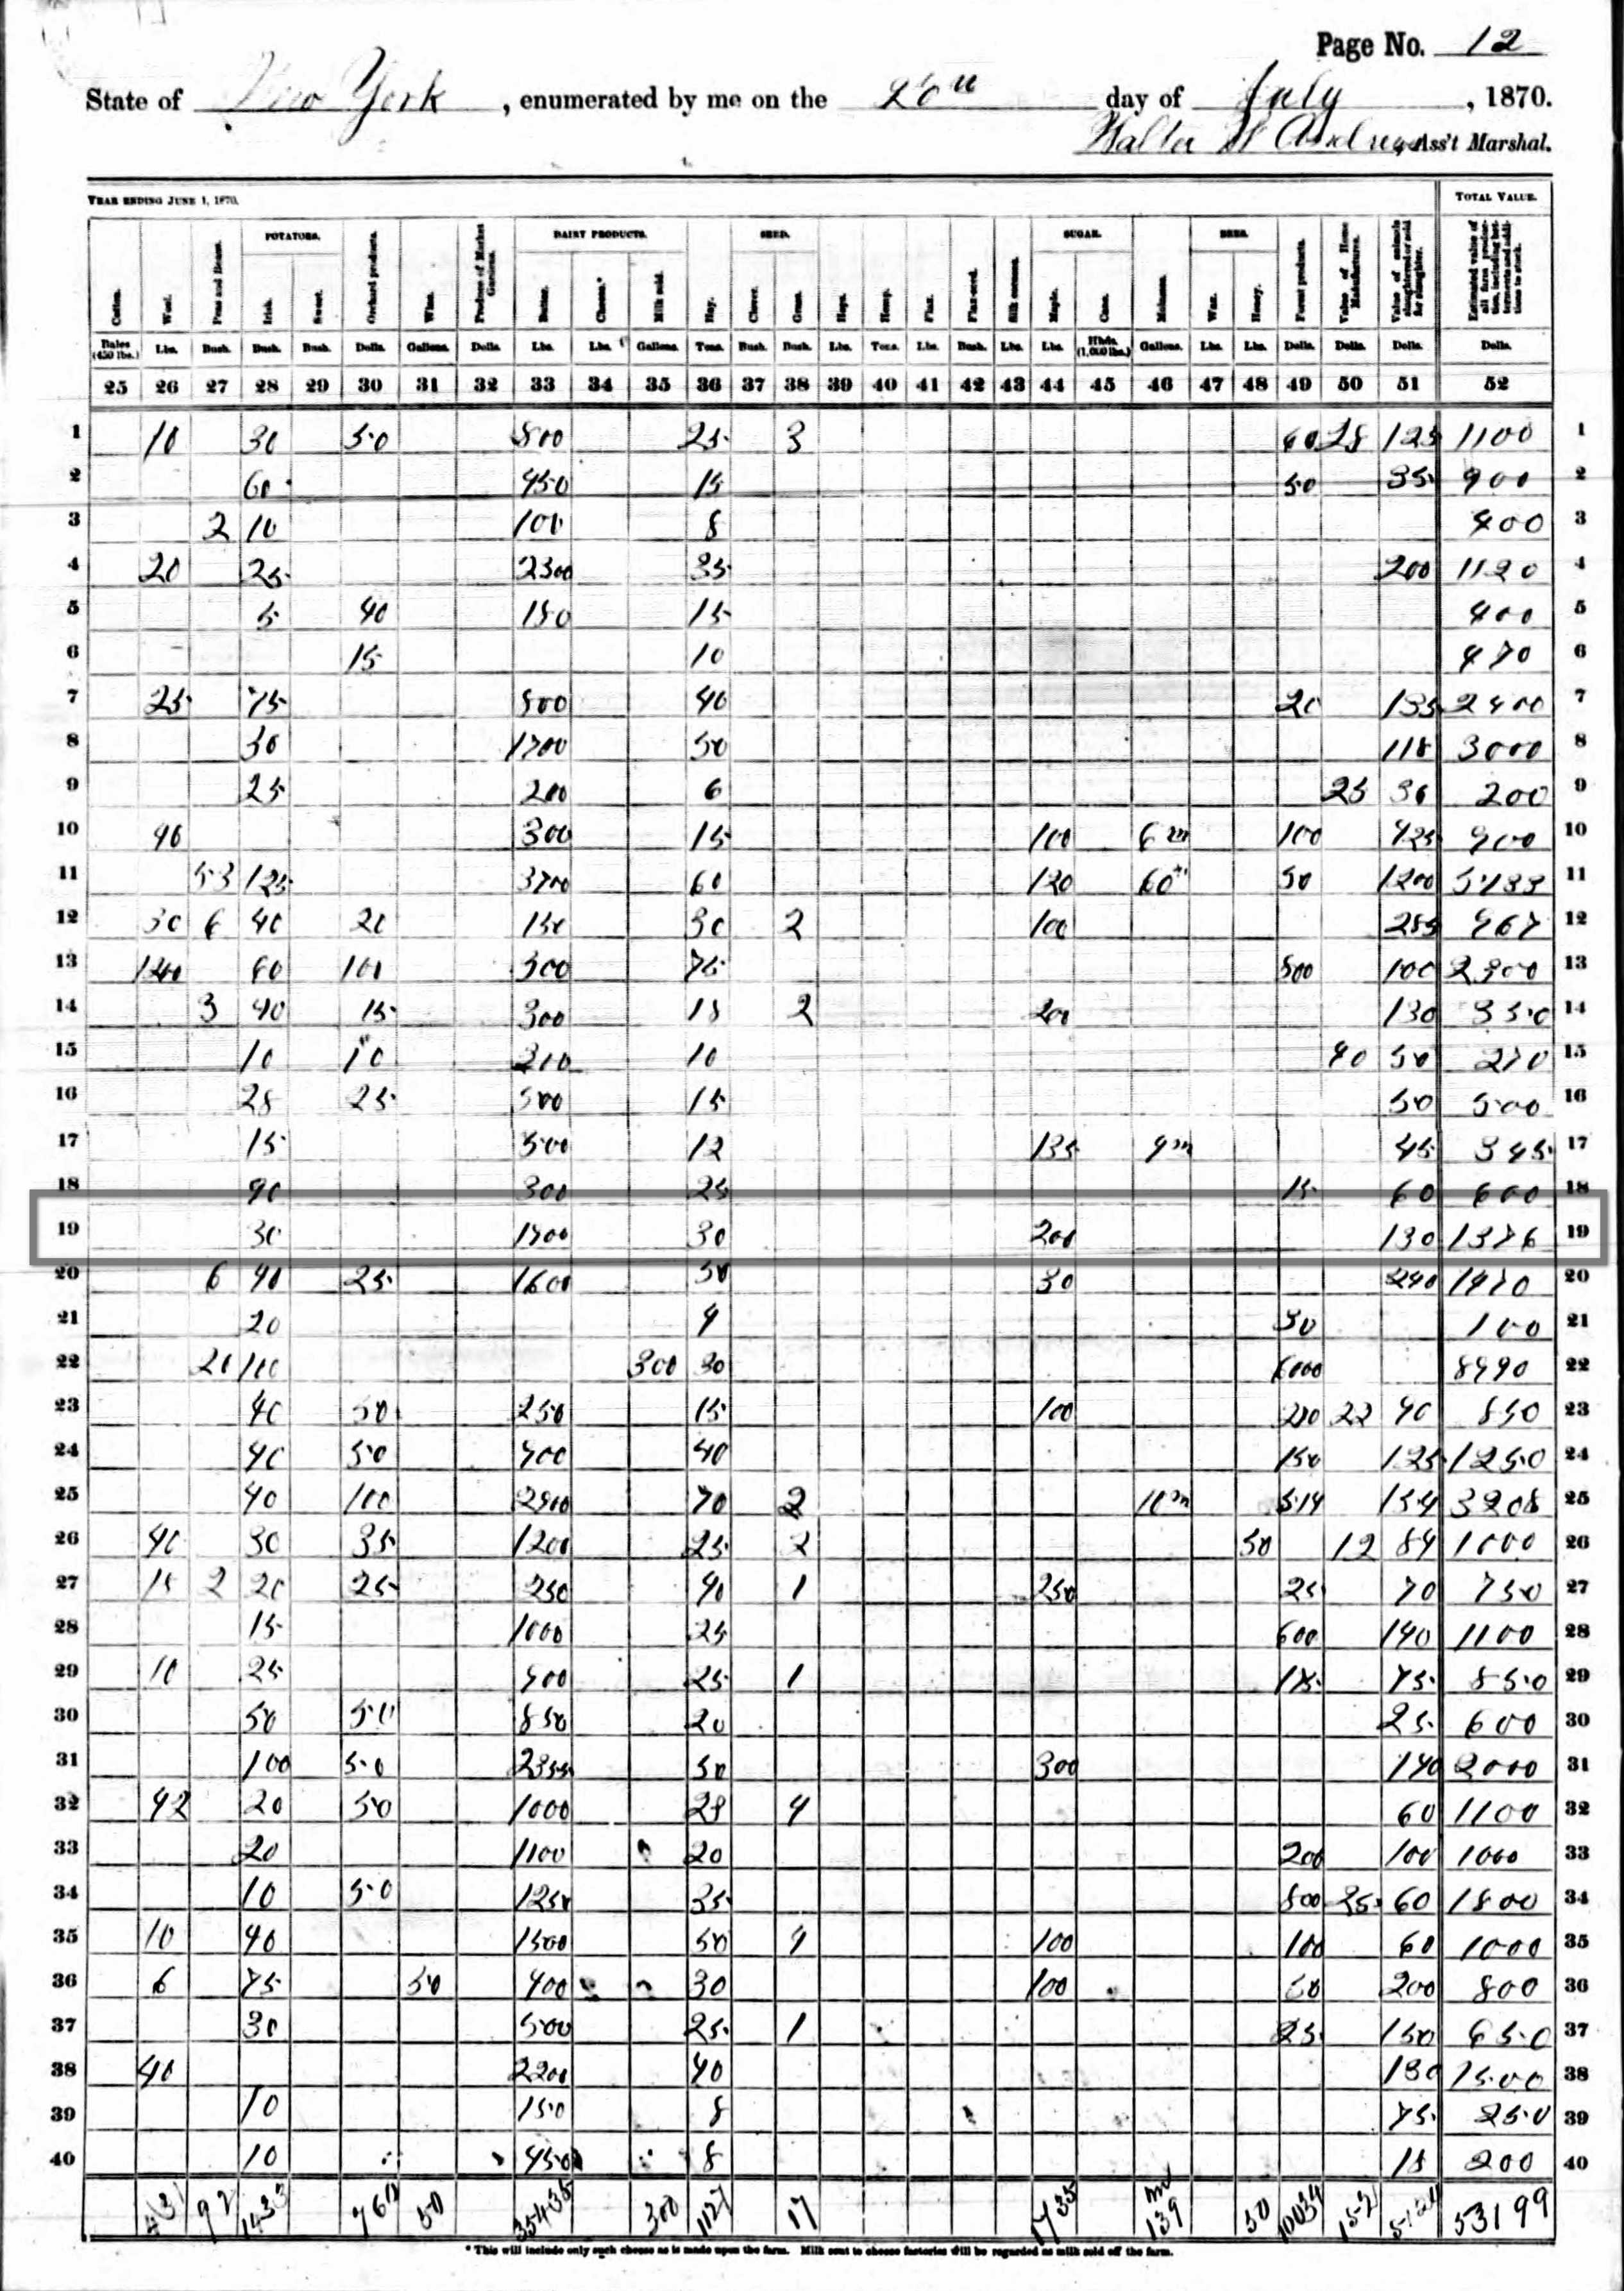 Page No. 12
State of New York, enumerated by me on the 20th day of July, 1870.
Walter W Andrews Ass't Marshal.
YEAR ENDING JUNE 1, 1870. TOTAL VALUE.
POTATOES. DAIRY PRODUCTS. SEED. SUGAR. BEES.
Cotton. Wool. Peas and Beans. Irish. Sweet. Orchard products. Wine. Produce of Market Gardens. Butter. Cheese.* Milk sold. Hay. Clover. Grass. Hops. Hemp. Flax. Flax-seed. Silk cocoons. Maple. Cane. Molasses. Wax. Honey. Forest products. Value of Home Manufactures. Value of animals slaughtered or sold for slaughter. Estimated value of all farm production, including betterments and additions to stock.
Bales (450 lbs.) Lbs. Bush. Bush. Bush. Dolls. Gallons. Dolls. Lbs. Lbs. Gallons. Tons. Bush. Bush. Lbs. Tons. Lbs. Bush. Lbs. Lbs. Hhds. (1,000 lbs.) Gallons. Lbs. Lbs. Dolls. Dolls. Dolls. Dolls.
25 26 27 28 29 30 31 32 33 34 35 36 37 38 39 40 41 42 43 44 45 46 47 48 49 50 51 52
1 10 30 50 500 25 3 60 28 125 1100 1
2 60 450 15 50 35 900 2
3 2 10 100 8 400 3
4 20 25 2300 35 200 1120 4
5 5 40 150 15 400 5
6 15 10 470 6
7 25 75 500 40 20 135 2400 7
8 30 1700 50 118 3000 8
9 25 200 6 25 36 200 9
10 40 300 15 100 6 m 100 425 900 10
11 53 125 3700 60 120 60 50 1200 5133 11
12 30 6 40 20 150 30 2 100 285 967 12
13 60 100 300 75 500 100 2300 13
14 3 40 15 300 18 2 200 130 350 14
15 10 10 210 10 40 50 270 15
16 28 25 500 15 50 500 16
17 15 500 12 135 9 m 45 345 17
18 90 300 25 15 60 600 18
19 30 1700 30 200 130 1376 19
20 6 40 25 1600 50 30 240 1470 20
21 20 4 30 100 21
22 20 100 300 30 6000 8490 22
23 40 50 250 15 100 200 22 40 850 23
24 40 50 400 40 150 125 1250 24
25 40 100 2900 70 2 10 m 514 154 3208 25
26 40 30 35 1200 25 2 50 12 84 1000 26
27 15 2 20 25 250 40 1 250 25 70 750 27
28 15 1000 25 600 140 1100 28
29 10 25 900 25 1 175 75 850 29
30 50 50 850 20 25 600 30
31 100 50 50 300 140 2000 31
32 42 20 50 1000 28 4 60 1100 32
33 20 1100 20 200 100 1000 33
34 10 50 1250 35 800 25 60 1800 34
35 10 40 1500 50 4 100 100 60 1000 35
36 6 75 50 400 30 100 50 200 800 36
37 30 500 25 1 25 150 650 37
38 40 2200 40 130 1500 38
39 10 150 8 75 250 39
40 10 450 8 18 200 40
92 1433 760 50 35435 300 1127 17 1735 139 50 10034 152 5124 53199
* This will include only such cheese as is made upon the farm. Milk sent to cheese factories will be regarded as milk sold off the farm.